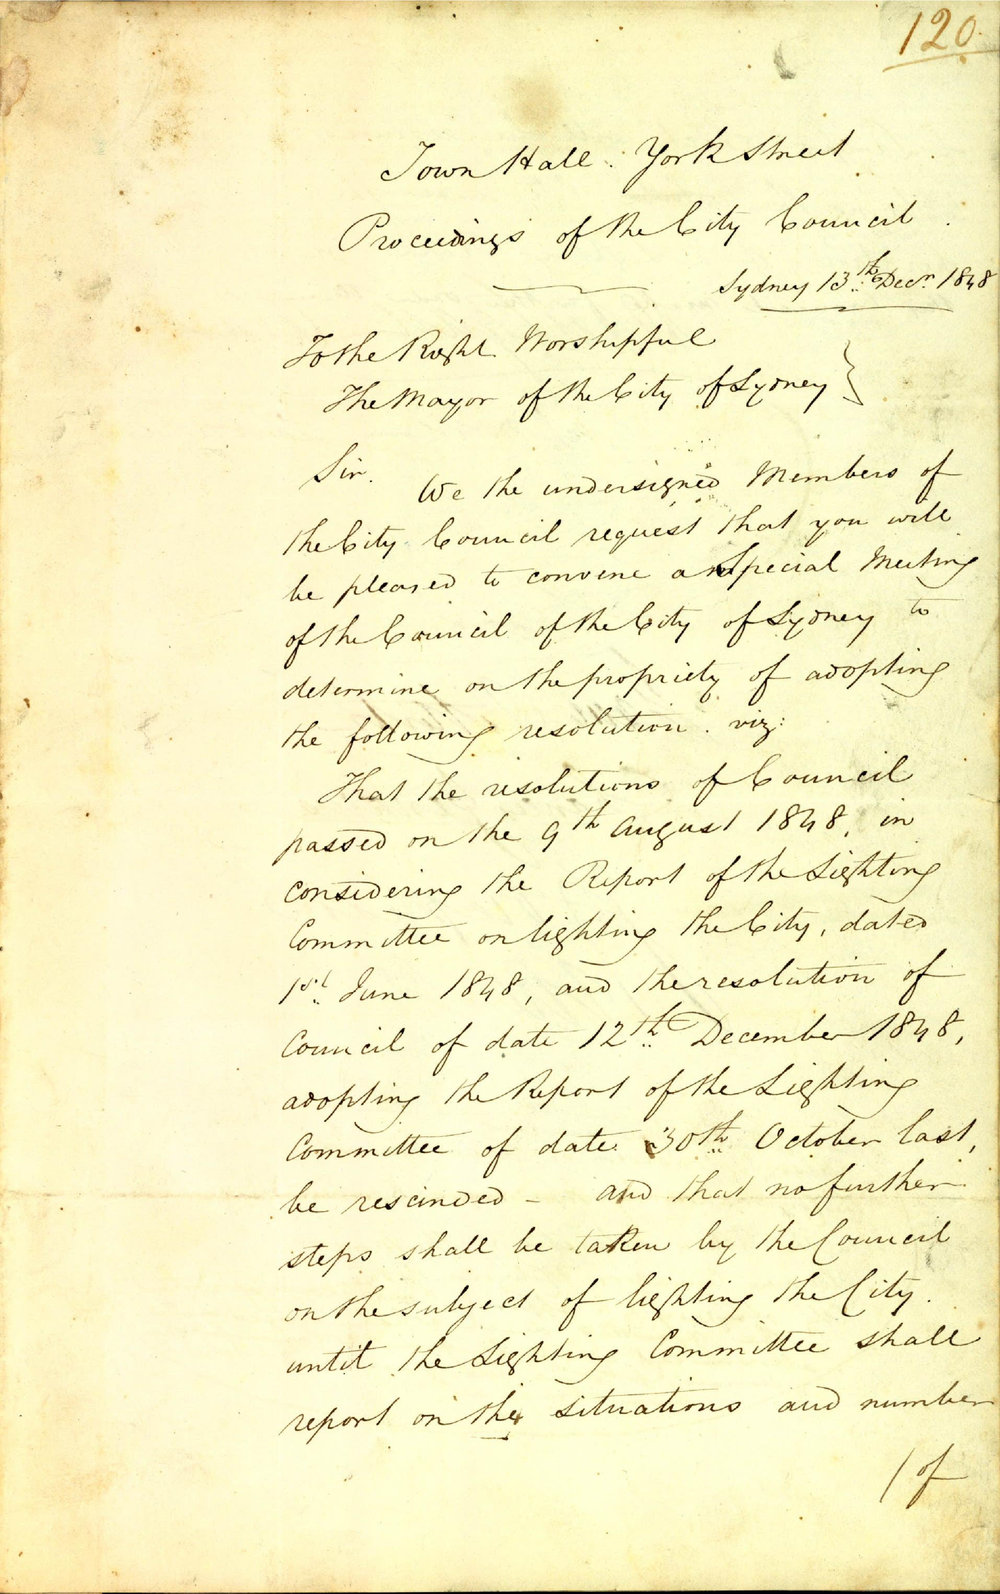 120.
Town Hall. York Street
Proceedings of the City Council.
Sydney 13th Decr. 1848
To the Right Worshipful
The Mayor of the City of Sydney }
Sir. We the undersigned Members of
the City Council request that you will
be pleased to convene a Special Meeting
of the Council of the City of Sydney to
determine on the propriety of adopting
the following resolution. viz:
That the resolutions of Council
passed on the 9th August 1848, in
considering the Report of the Lighting
Committee on lighting the City, dated
1st. June 1848, and the resolution of
Council of date 12th. December 1848,
adopting the Report of the Lighting
Committee of date 30th. October last,
be rescinded - and that no further
steps shall be taken by the Council
on the subject of lighting the City.
until the Lighting Committee shall
report on the situations and number
/ of